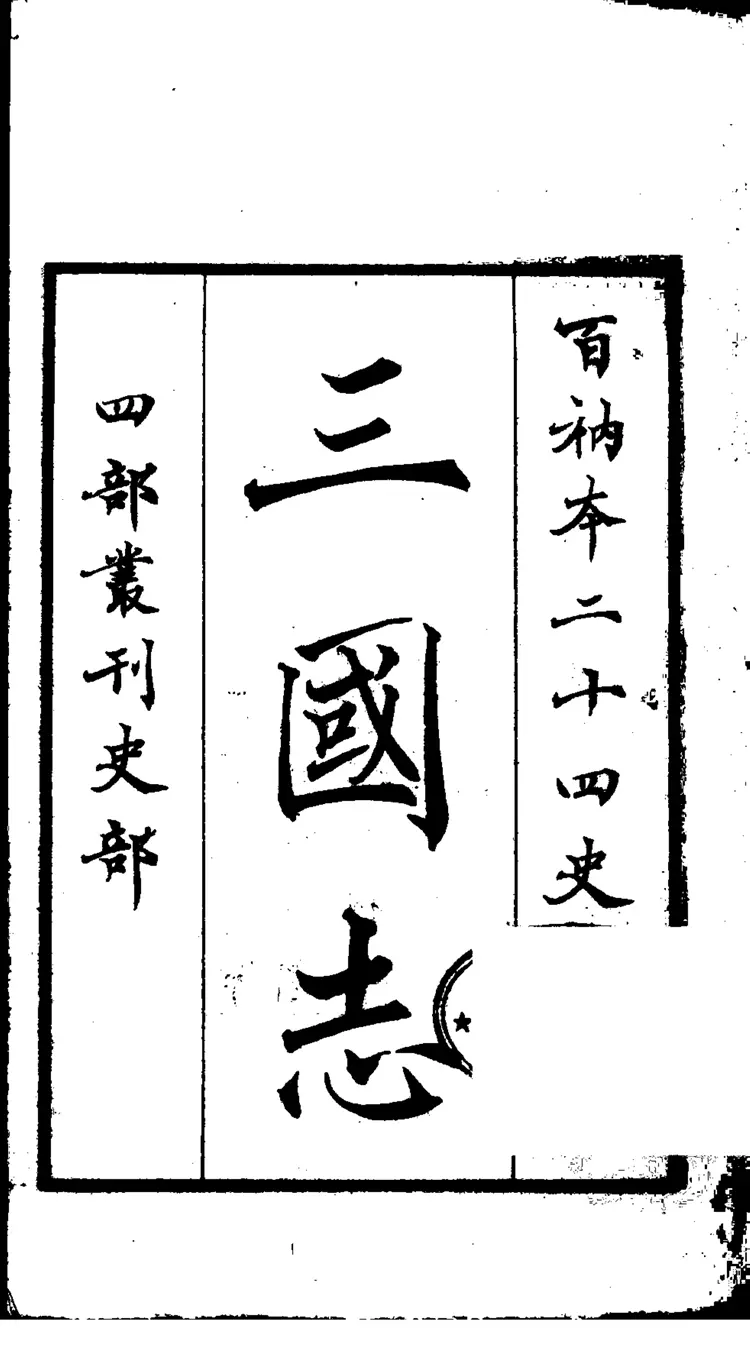 百衲本二十四史
三國志
四部叢刊史部